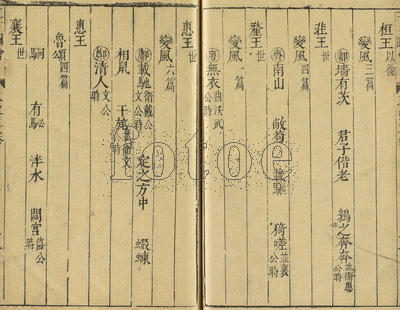 桓王以後
變風三篇
鄘 墻有茨 君子偕老 鶉之奔奔 並衛惠公時
莊王世
變風四篇
齊 南山 敝笱 載驅 猗嗟 並襄公時
釐王世
變風一篇
唐 無衣 曲沃武公時
惠王世
變風六篇
鄘 載馳 衛戴公文公時 定之方中 蝃蝀
相鼠 干旄 並衛文公時
鄭 清人 文公時
惠王
魯頌四篇
駉 有駜 泮水 閟宮 僖公時
襄王世
lotoe